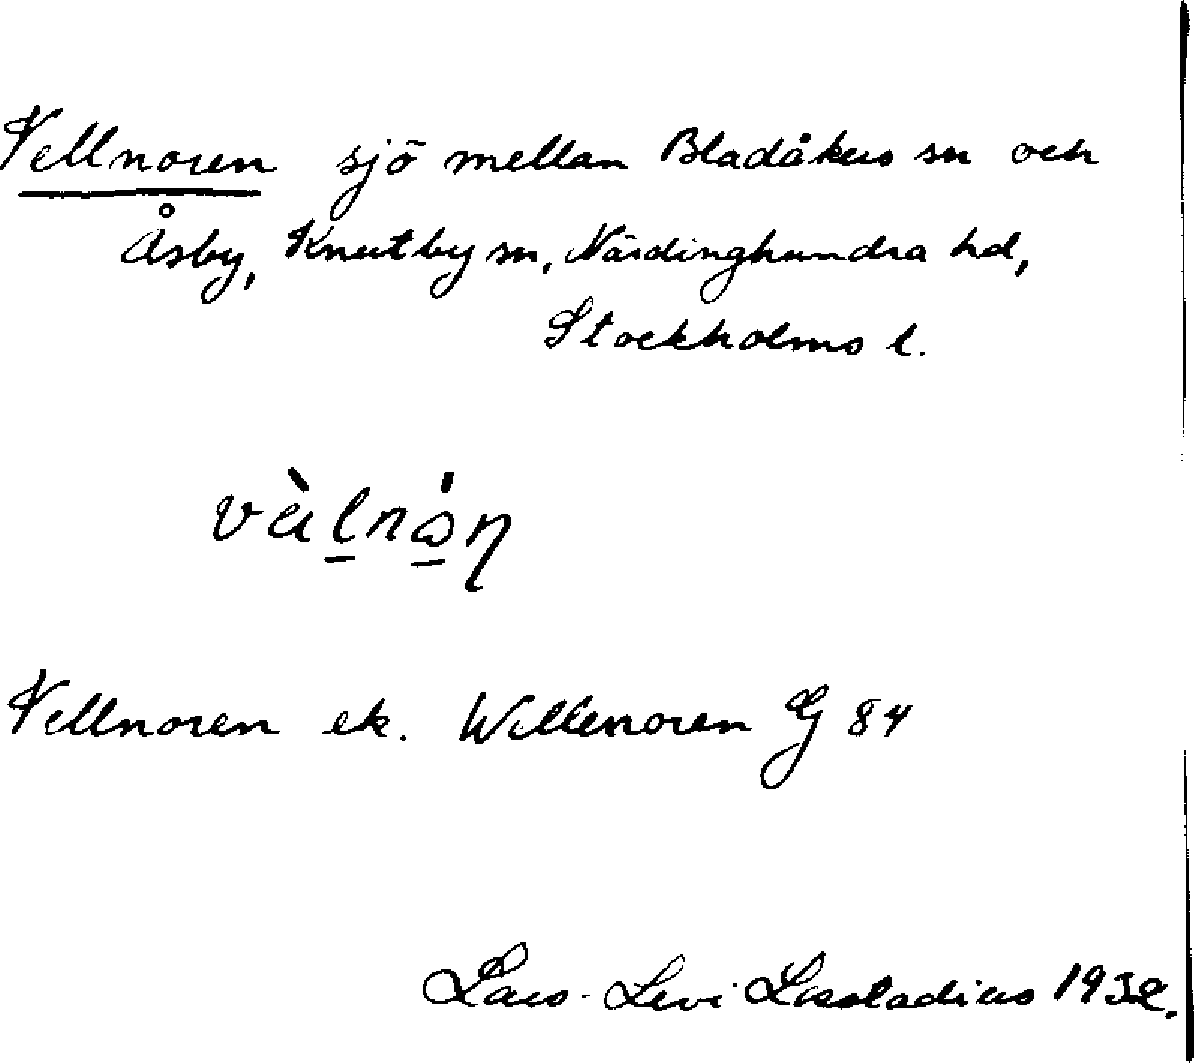 Vellnoren sjö mellan Bladåkers sn och
Åsby, Knutby sn, Närdinghundra hd,
Stockholms l.
Vellnoren ek. Wellenoren G 84
Lars-Levi Læstadius 1932.